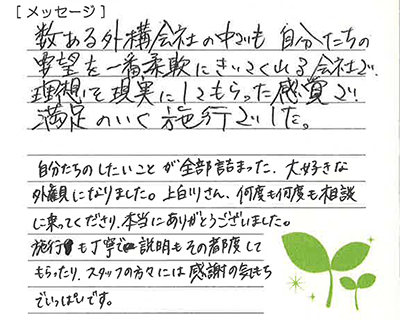 [メッセージ]
数ある外構会社の中でも 自分たちの
要望を一番柔軟にきいてくれる会社で、
理想を現実にしてもらった感覚で
満足のいく施行でした。
自分たちのしたいことが全部詰まった、大好きな
外観になりました。上白川さん、何度も何度も相談
に乗ってくださり、本当にありがとうございました。
施行も丁寧で説明もその都度して
もらったり、スタッフの方々には感謝の気もち
でいっぱいです。